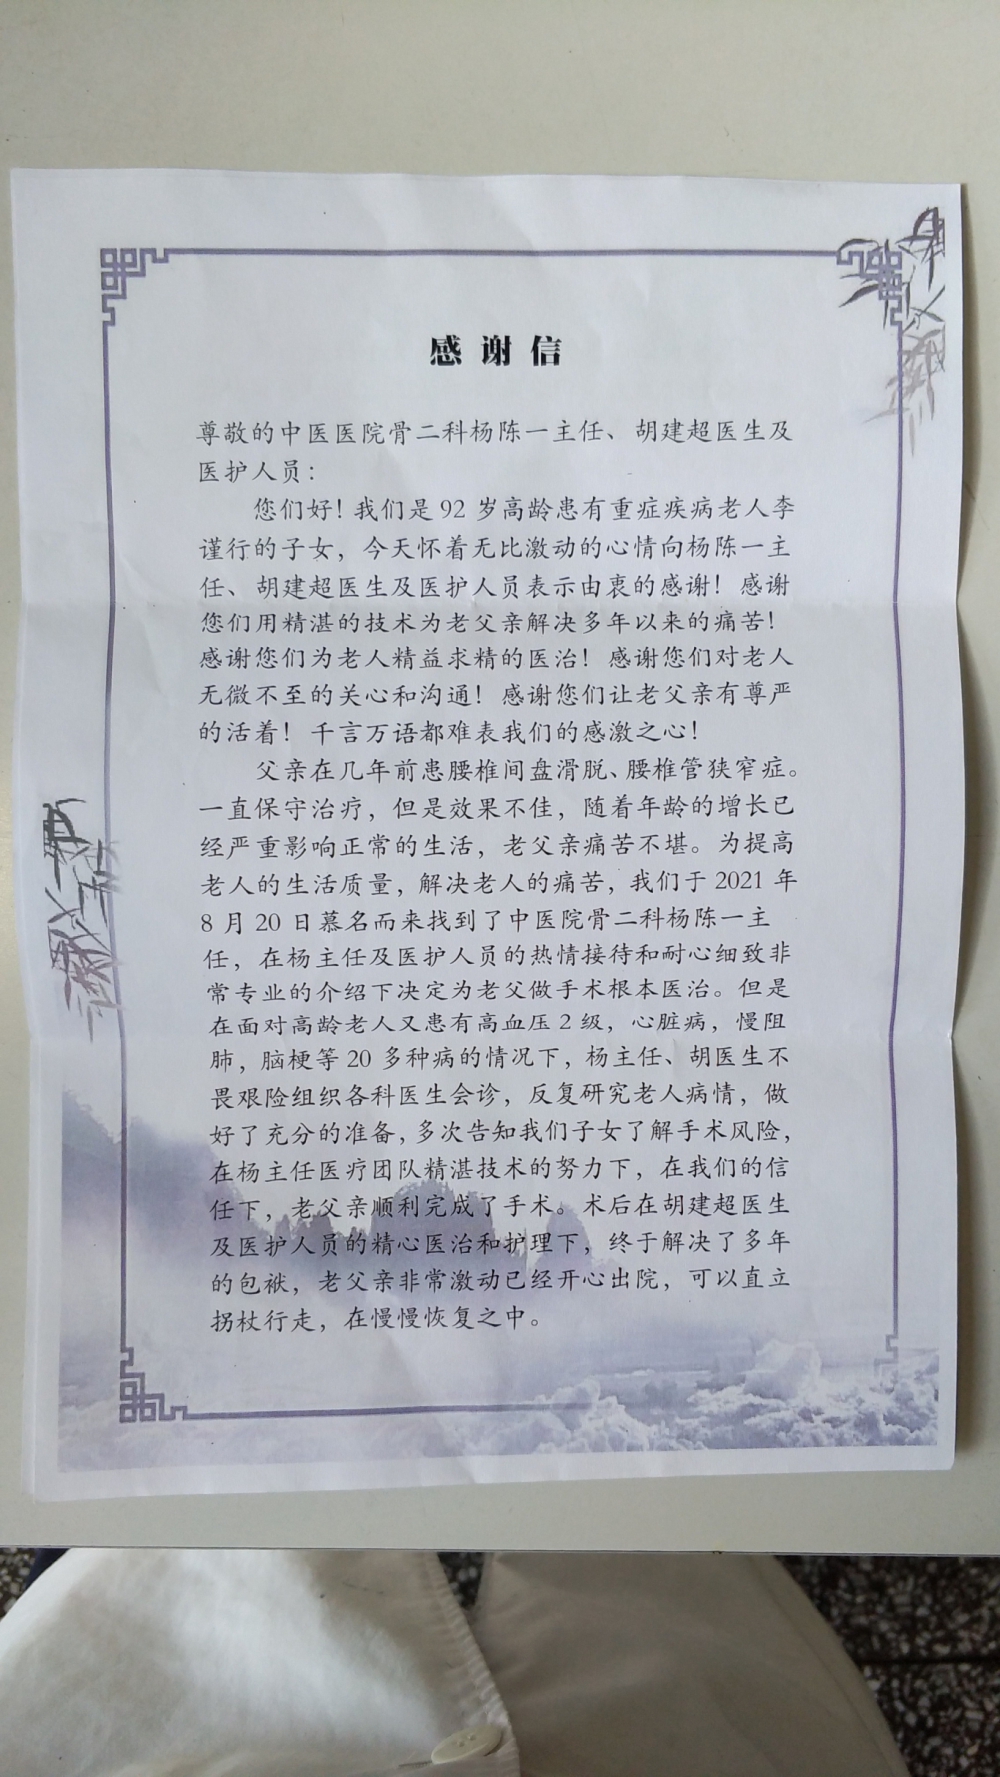 感谢信
尊敬的中医医院骨二科杨陈一主任、胡建超医生及
医护人员：
您们好！我们是92岁高龄患有重症疾病老人李
谨行的子女，今天怀着无比激动的心情向杨陈一主
任、胡建超医生及医护人员表示由衷的感谢！感谢
您们用精湛的技术为老父亲解决多年以来的痛苦！
感谢您们为老人精益求精的医治！感谢您们对老人
无微不至的关心和沟通！感谢您们让老父亲有尊严
的活着！千言万语都难表我们的感激之心！
父亲在几年前患腰椎间盘滑脱、腰椎管狭窄症。
一直保守治疗，但是效果不佳，随着年龄的增长已
经严重影响正常的生活，老父亲痛苦不堪。为提高
老人的生活质量，解决老人的痛苦，我们于2021年
8月20日慕名而来找到了中医院骨二科杨陈一主
任，在杨主任及医护人员的热情接待和耐心细致非
常专业的介绍下决定为老父做手术根本医治。但是
在面对高龄老人又患有高血压2级，心脏病，慢阻
肺，脑梗等20多种病的情况下，杨主任、胡医生不
畏艰险组织各科医生会诊，反复研究老人病情，做
好了充分的准备，多次告知我们子女了解手术风险，
在杨主任医疗团队精湛技术的努力下，在我们的信
任下，老父亲顺利完成了手术。术后在胡建超医生
及医护人员的精心医治和护理下，终于解决了多年
的包袱，老父亲非常激动已经开心出院，可以直立
拐杖行走，在慢慢恢复之中。